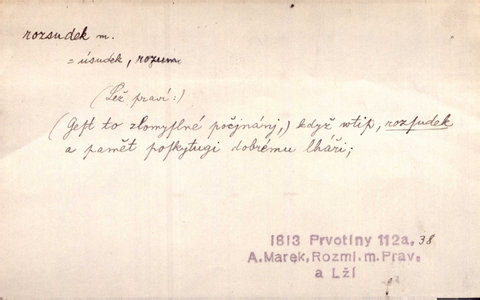 rozsudek m.
= úsudek, rozum.
(Lež praví:)
(Geſt to zlomyſlné počjnánj,) když wtip, rozſudek
a pamět poſkytugi dobrému lháři;
1813 Prvotiny 112a, 38
A. Marek, Rozml. m. Prav.
a Lží